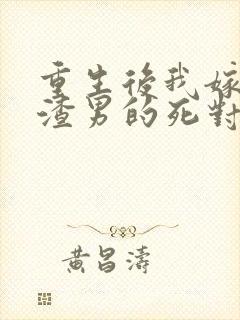 重生後我嫁
渣男的死對
黃昌濤